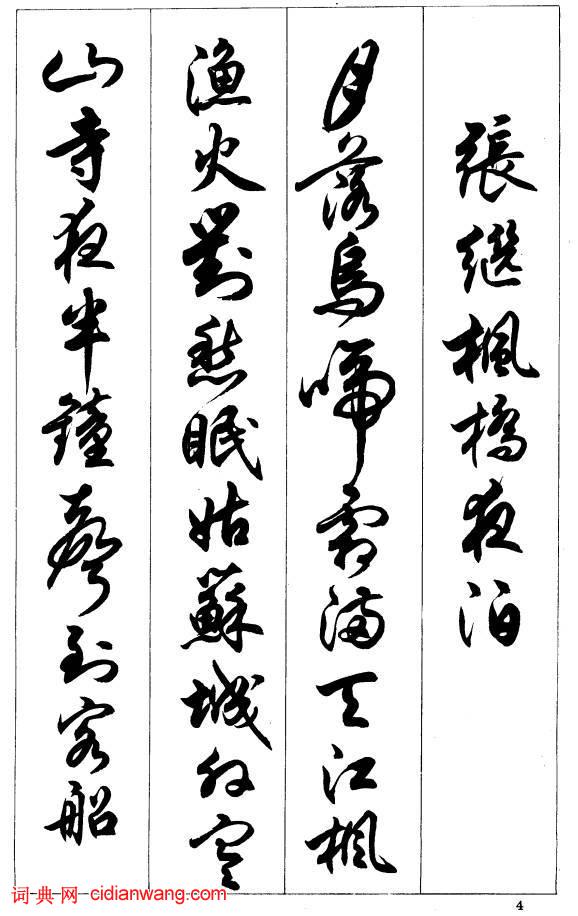 張继楓橋夜泊
月落烏啼霜满天江楓
漁火對愁眠姑蘇城外寒
山寺夜半鐘聲到客船
词典网-cidianwang.com
4